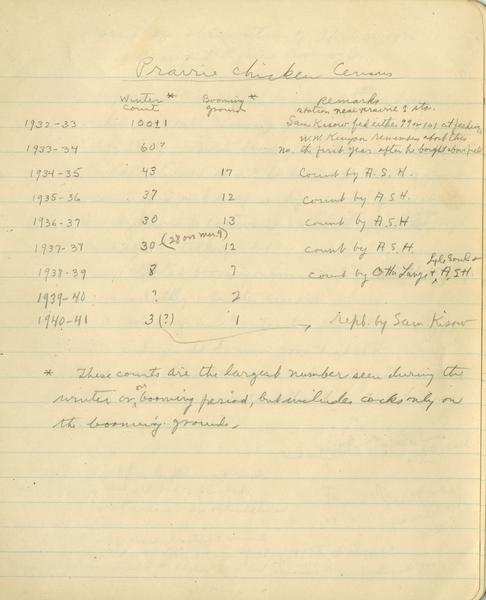 Prairie chicken Census
Winter * Count Booming * ground Remarks
station near Prairie
1932-33 100±1 Sam Kisow fed either 99 or 101 at
1933-34 60? W.W. Kinyon remembers about this
no. the first year after he bought
1934-35 43 17 Count by A.S.H.
1935-36 37 12 count by A.S.H.
1936-37 30 13 count by A.S.H
1937-38 30 (28 on Mar. 9) 12 count by A.S.H.
1938-39 8 7 count by Otto Lange, Lyle Sowls & A.S.H.
1939-40 ? 2
1940-41 3 (?) 1 rept. by Sam Kisow
* These counts are the largest number seen during the
winter or on booming period, but includes cocks only on
the booming grounds.